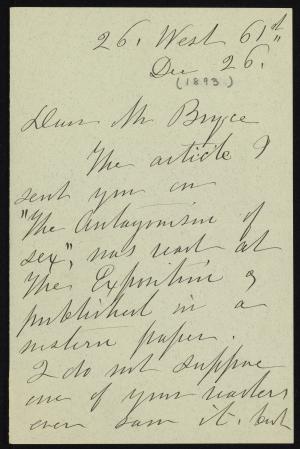 26. West 61st
Dec 26.
(1893)
Dear Mr Bryce
The article I
sent you on
"The Antagonism of
sex", was read at
the Exposition &
published in a
western paper.
I do not suppose
one of your readers
ever saw it, but